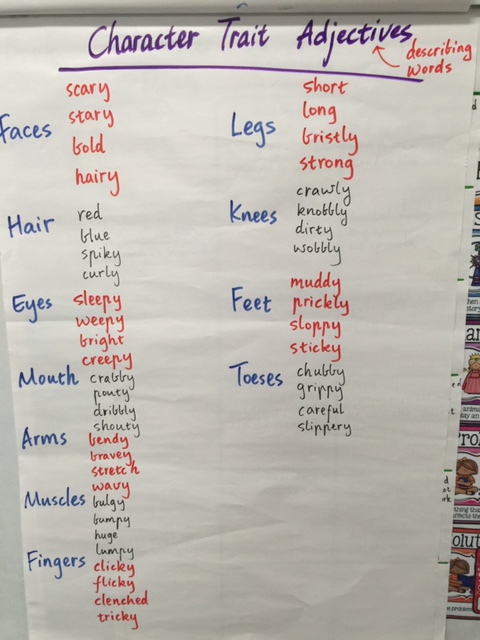 Character Trait Adjectives
describing
words
Faces
scary
stary
bold
hairy
Hair
red
blue
spiky
curly
Eyes
sleepy
weepy
bright
creepy
Mouth
crabby
pouty
dribbly
shouty
Arms
bendy
bravey
stretch
wavy
Muscles
bulgy
bumpy
huge
lumpy
Fingers
clicky
flicky
clenched
tricky
Legs
short
long
bristly
strong
Knees
crawly
knobbly
dirty
wobbly
Feet
muddy
prickly
sloppy
sticky
Toeses
chubby
grippy
careful
slippery